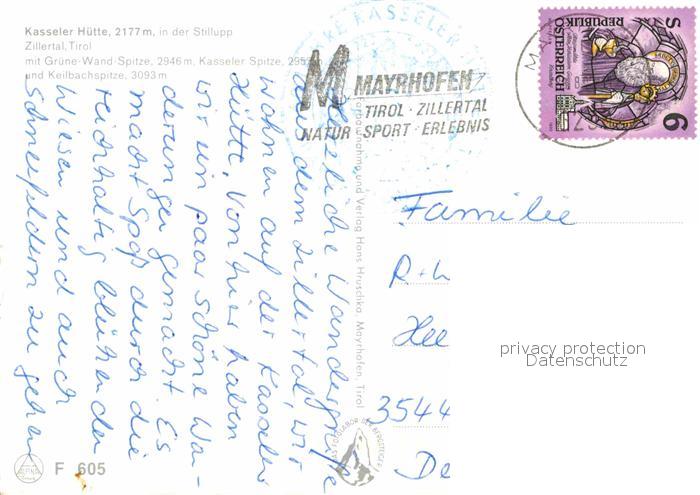 Kasseler Hütte, 2177 m, in der Stillupp
Zillertal, Tirol
mit Grüne-Wand-Spitze, 2946 m, Kasseler Spitze,
und Keilbachspitze, 3093 m
KASSELER
M MAYRHOFEN
TIROL · ZILLERTAL
NATUR · SPORT · ERLEBNIS
REPUBLIK
ÖSTERREICH
S
6
liche Wandergrüße
aus dem Zillertal, wir
wohnen auf der Kasseler
Hütte. Von hier haben
wir ein paar schöne Wa-
derungen gemacht. Es
macht Spaß durch die
reichhaltig blühenden
Wiesen und auch
Schneefeldern zu gehen
und Verlag Hans Hruschka, Mayrhofen, Tirol
Familie
R+
Hee
3544
De
privacy protection
Datenschutz
F 605